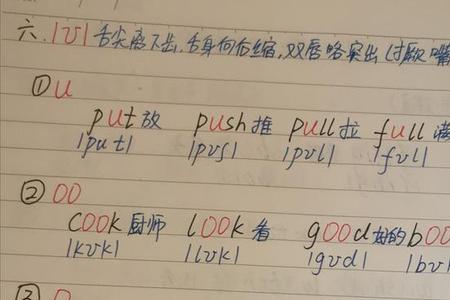 六. /ʊ/ 舌尖离下齿, 舌身向后缩, 双唇略突出 (才厥嘴
① u
put 放 push 推 pull 拉 full 满
/put/ /pʊʃ/ /pʊl/ /fʊl/
② oo
cook 厨师 look 看 good 好的 boo
/kʊk/ /lʊk/ /gʊd/ /bʊ
③ o